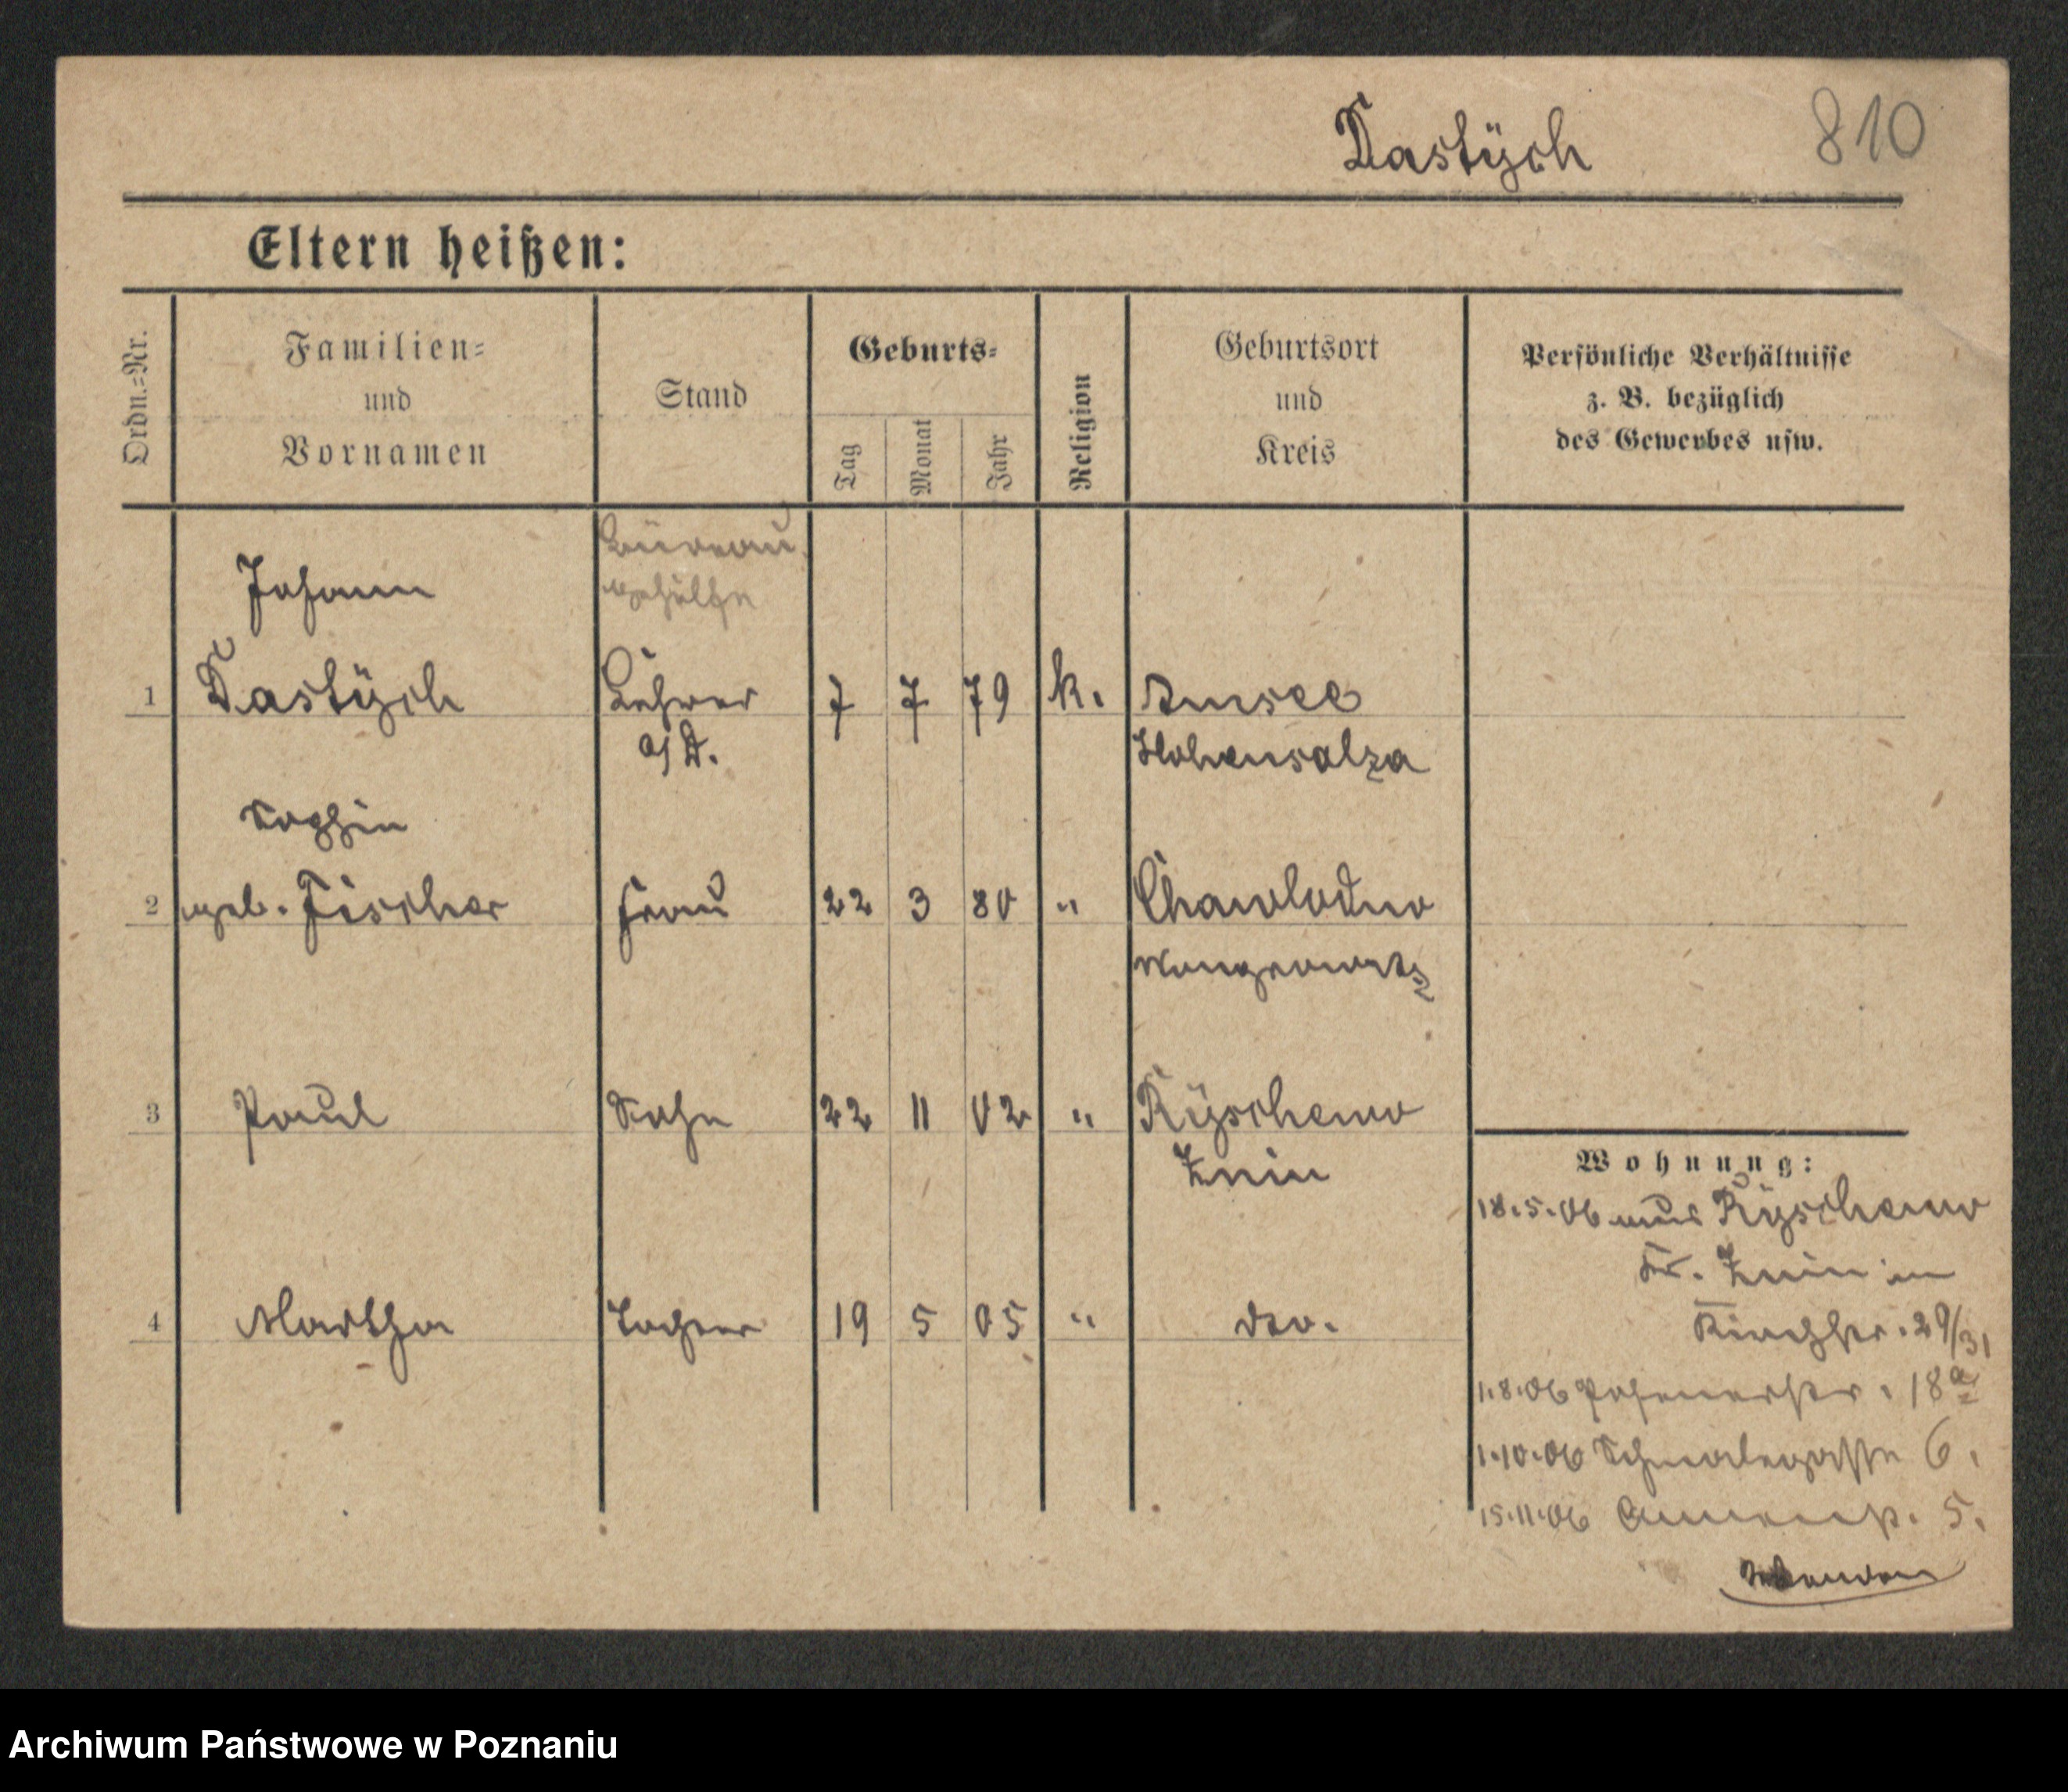 Dastÿch 810
Eltern heißen:
Ordn.=Nr.
Familien=
und
Vornamen
Stand
Geburts=
Tag
Monat
Jahr
Religion
Geburtsort
und
Kreis
Persönliche Verhältnisse
z. B. bezüglich
des Gewerbes usw.
Büreau
gehülfe
Johann
1 Dastÿch Lehrer 7 7 79 k. Amsee
a/D. Hohensalza
Sophie
2 geb. Fischer Frau 22 3 80 " Chawlodno
Wongrowitz
3 Paul Sohn 22 11 02 " Rÿschewo
Znin
Wohnung:
18.5.06 aus Rÿschewo
Kr. Znin in
4 Martha Tochter 19 5 05 " dto.
Kirchstr. 29/31
1.8.06 Posenerstr. 18a
1.10.06 Schmalegasse 6.
15.11.06 5.
Archiwum Państwowe w Poznaniu